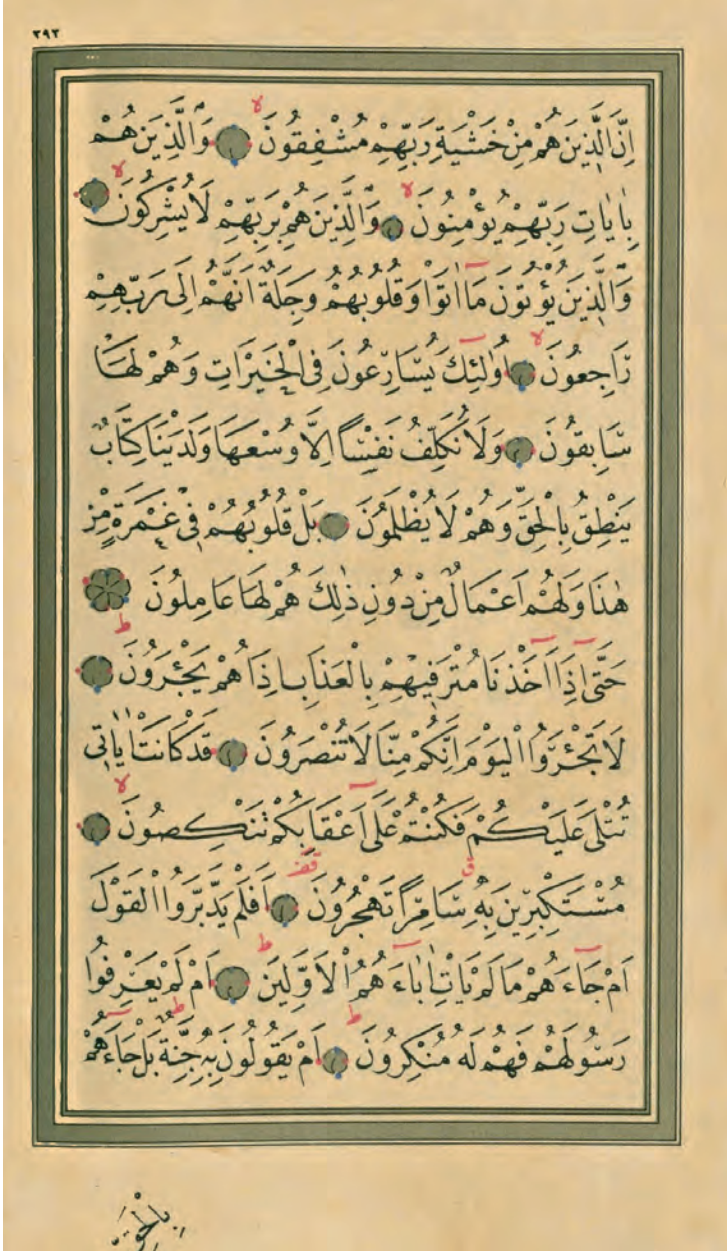 ٢٩٢
اِنَّ الَّذِينَ هُمْ مِنْ خَشْيَةِ رَبِّهِمْ مُشْفِقُونَ وَالَّذِينَ هُمْ
بِاٰيَاتِ رَبِّهِمْ يُؤْمِنُونَ وَالَّذِينَ هُمْ بِرَبِّهِمْ لَا يُشْرِكُونَ
وَالَّذِينَ يُؤْتُونَ مَٓا اٰتَوْا وَقُلُوبُهُمْ وَجِلَةٌ اَنَّهُمْ اِلٰى رَبِّهِمْ
رَاجِعُونَ اُولٰٓئِكَ يُسَارِعُونَ فِى الْخَيْرَاتِ وَهُمْ لَهَا
سَابِقُونَ وَلَا نُكَلِّفُ نَفْسًا اِلَّا وُسْعَهَا وَلَدَيْنَا كِتَابٌ
يَنْطِقُ بِالْحَقِّ وَهُمْ لَا يُظْلَمُونَ بَلْ قُلُوبُهُمْ فِى غَمْرَةٍ مِنْ
هٰذَا وَلَهُمْ اَعْمَالٌ مِنْ دُونِ ذٰلِكَ هُمْ لَهَا عَامِلُونَ
حَتّٰٓى اِذَٓا اَخَذْنَا مُتْرَفِيهِمْ بِالْعَذَابِ اِذَا هُمْ يَجْـَٔرُونَ
لَا تَجْـَٔرُوا الْيَوْمَ اِنَّكُمْ مِنَّا لَا تُنْصَرُونَ قَدْ كَانَتْ اٰيَاتِى
تُتْلٰى عَلَيْكُمْ فَكُنْتُمْ عَلٰٓى اَعْقَابِكُمْ تَنْكِصُونَ
مُسْتَكْبِرِينَ بِهِ سَامِرًا تَهْجُرُونَ اَفَلَمْ يَدَّبَّرُوا الْقَوْلَ
اَمْ جَٓاءَهُمْ مَا لَمْ يَاْتِ اٰبَٓاءَهُمُ الْاَوَّلِينَ اَمْ لَمْ يَعْرِفُوا
رَسُولَهُمْ فَهُمْ لَهُ مُنْكِرُونَ اَمْ يَقُولُونَ بِهِ جِنَّةٌ بَلْ جَٓاءَهُمْ
بِالْحَقِّ